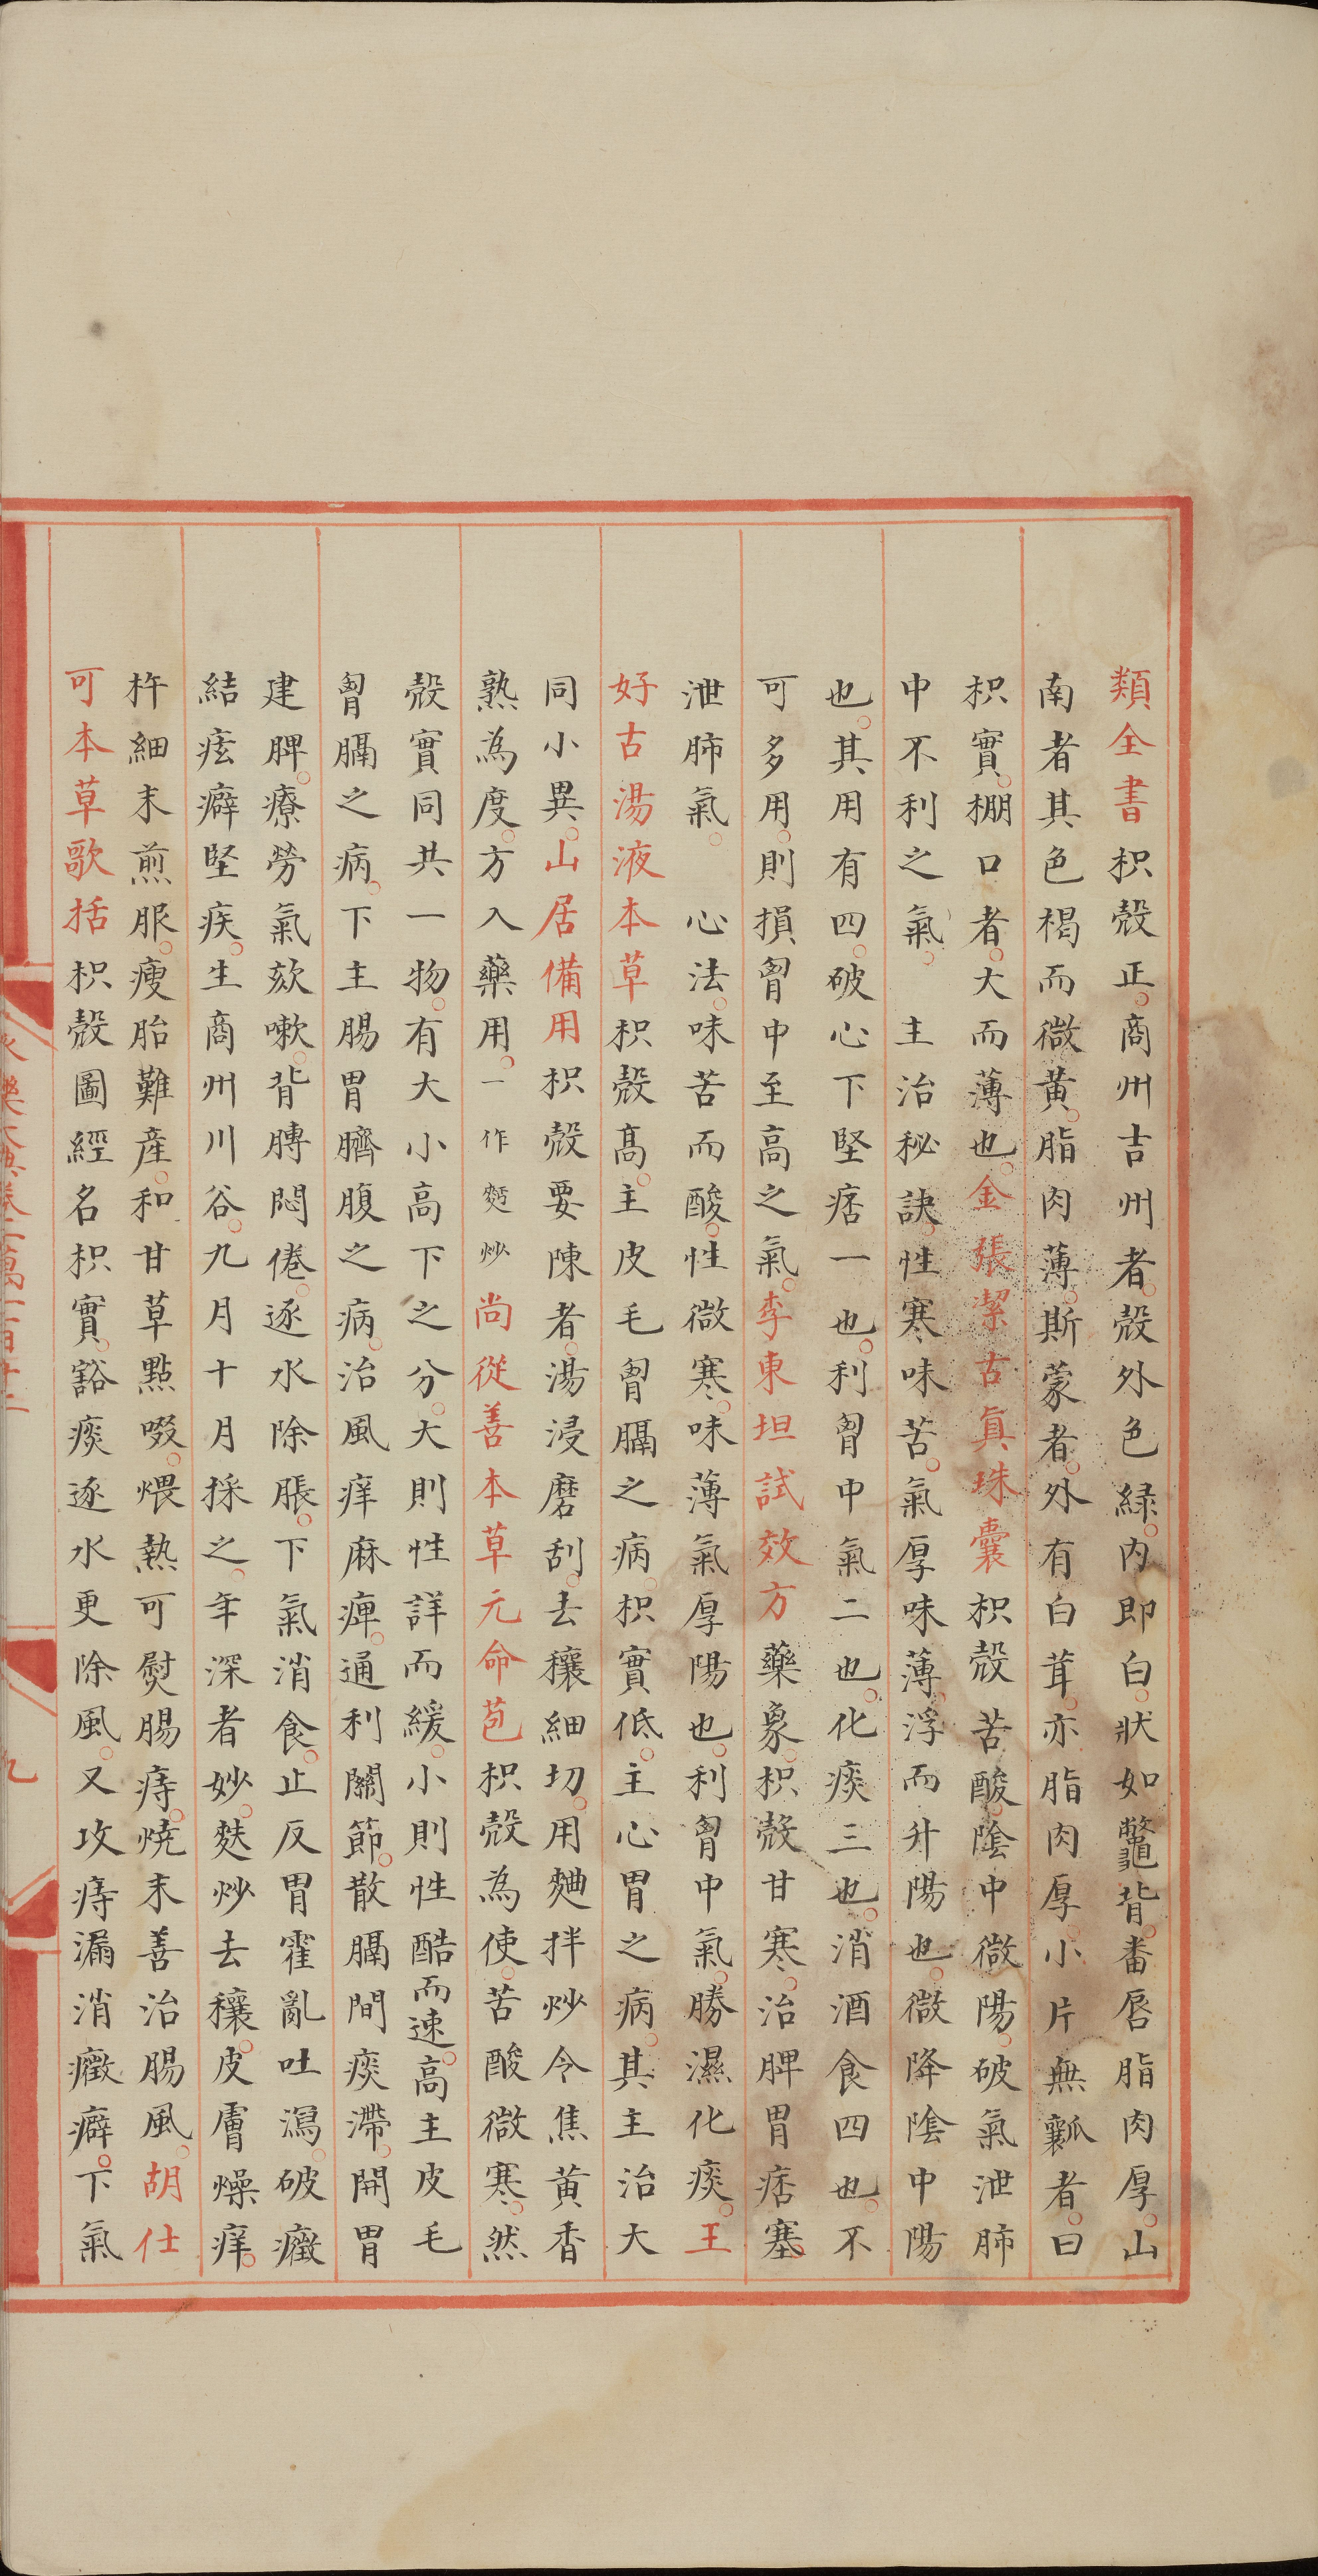 類全書枳殼正商州吉州者殼外色緑内即白狀如鼈背番唇脂肉厚山
南者其色褐而微黄脂肉薄斯蒙者外有白茸亦脂肉厚小片無瓤者曰
枳實棚口者大而薄也金張潔古真珠囊枳殼苦酸隂中微陽破氣泄肺
中不利之氣主治秘訣性寒味苦氣厚味薄浮而升陽也微降隂中陽
也其用有四破心下堅痞一也利胷中氣二也化痰三也消酒食四也不
可多用則損胷中至高之氣李東垣試效方藥象枳殼甘寒治脾胃痞塞
泄肺氣心法味苦而酸性微寒味薄氣厚陽也利胷中氣勝濕化痰王
好古湯液本草枳殼髙主皮毛胷膈之病枳實低主心胃之病其主治大
同小異山居備用枳殼要陳者湯浸磨刮去穰細切用麯拌炒令焦黄香
熟為度方入藥用一作麪炒尚從善本草元命苞枳殼為使苦酸微寒然
殼實同共一物有大小高下之分大則性詳而緩小則性酷而速高主皮毛
胷膈之病下主腸胃臍腹之病治風痒麻痺通利關節散膈間痰滯開胃
建脾療勞氣欬嗽背膊悶倦逐水除脹下氣消食止反胃霍亂吐瀉破癥
結痃癖堅疾生商州川谷九月十月採之年深者妙麩炒去穰皮膚燥痒
杵細末煎服瘦胎難産和甘草點啜煨熱可熨腸痔燒末善治腸風胡仕
可本草歌括枳殼圖經名枳實豁痰逐水更除風又攻痔漏消癥癖下氣
永樂大典卷二萬二百十二
九